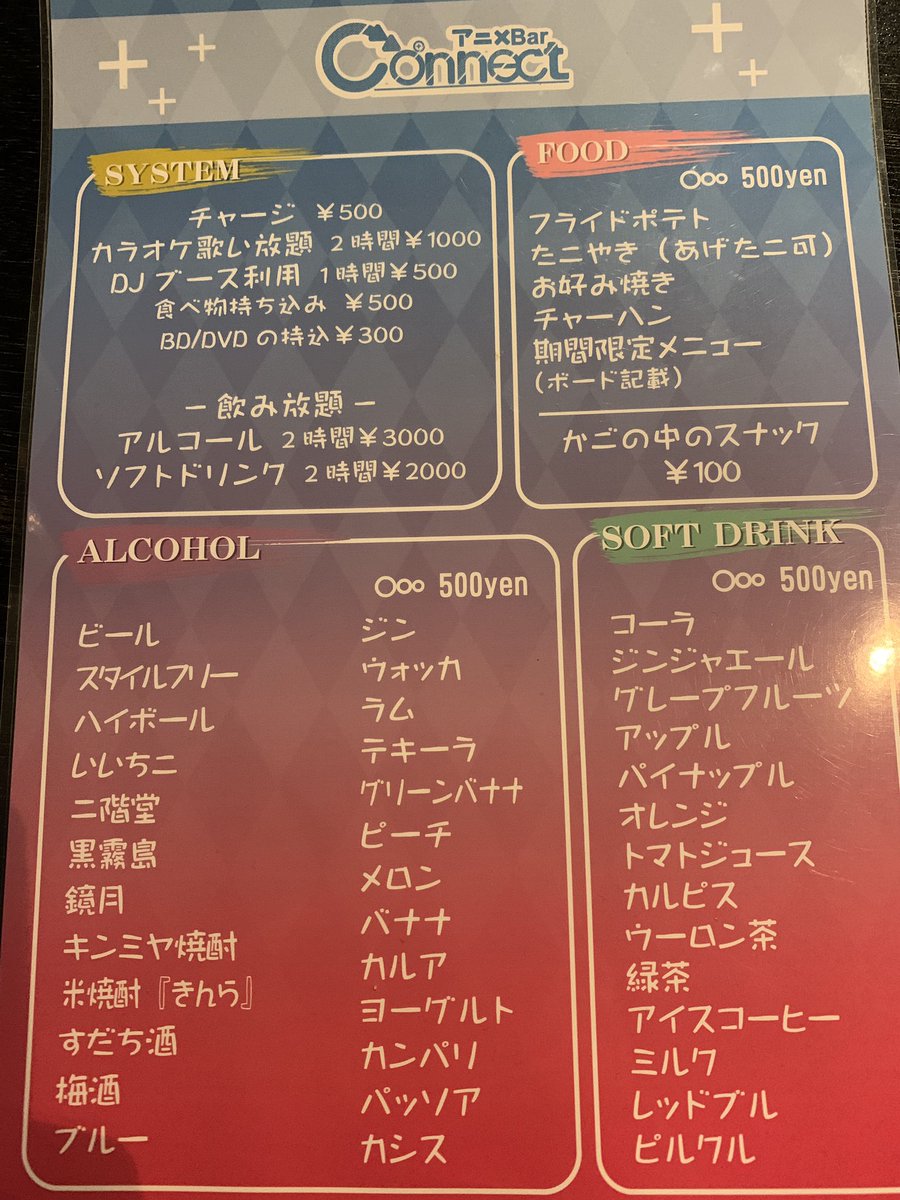 アニ×Bar
Connect
SYSTEM
チャージ ￥500
カラオケ歌い放題 2時間￥1000
DJブース利用 1時間￥500
食べ物持ち込み ￥500
BD/DVDの持込￥300
－飲み放題－
アルコール 2時間￥3000
ソフトドリンク 2時間￥2000
FOOD
500yen
フライドポテト
たこやき（あげたこ可）
お好み焼き
チャーハン
期間限定メニュー
(ボード記載)
かごの中のスナック
￥100
ALCOHOL
500yen
ビール
スタイルフリー
ハイボール
いいちこ
二階堂
黒霧島
鏡月
キンミヤ焼酎
米焼酎『きんら』
すだち酒
梅酒
ブルー
ジン
ウォッカ
ラム
テキーラ
グリーンバナナ
ピーチ
メロン
バナナ
カルア
ヨーグルト
カンパリ
パッソア
カシス
SOFT DRINK
500yen
コーラ
ジンジャエール
グレープフルーツ
アップル
パイナップル
オレンジ
トマトジュース
カルピス
ウーロン茶
緑茶
アイスコーヒー
ミルク
レッドブル
ピルクル